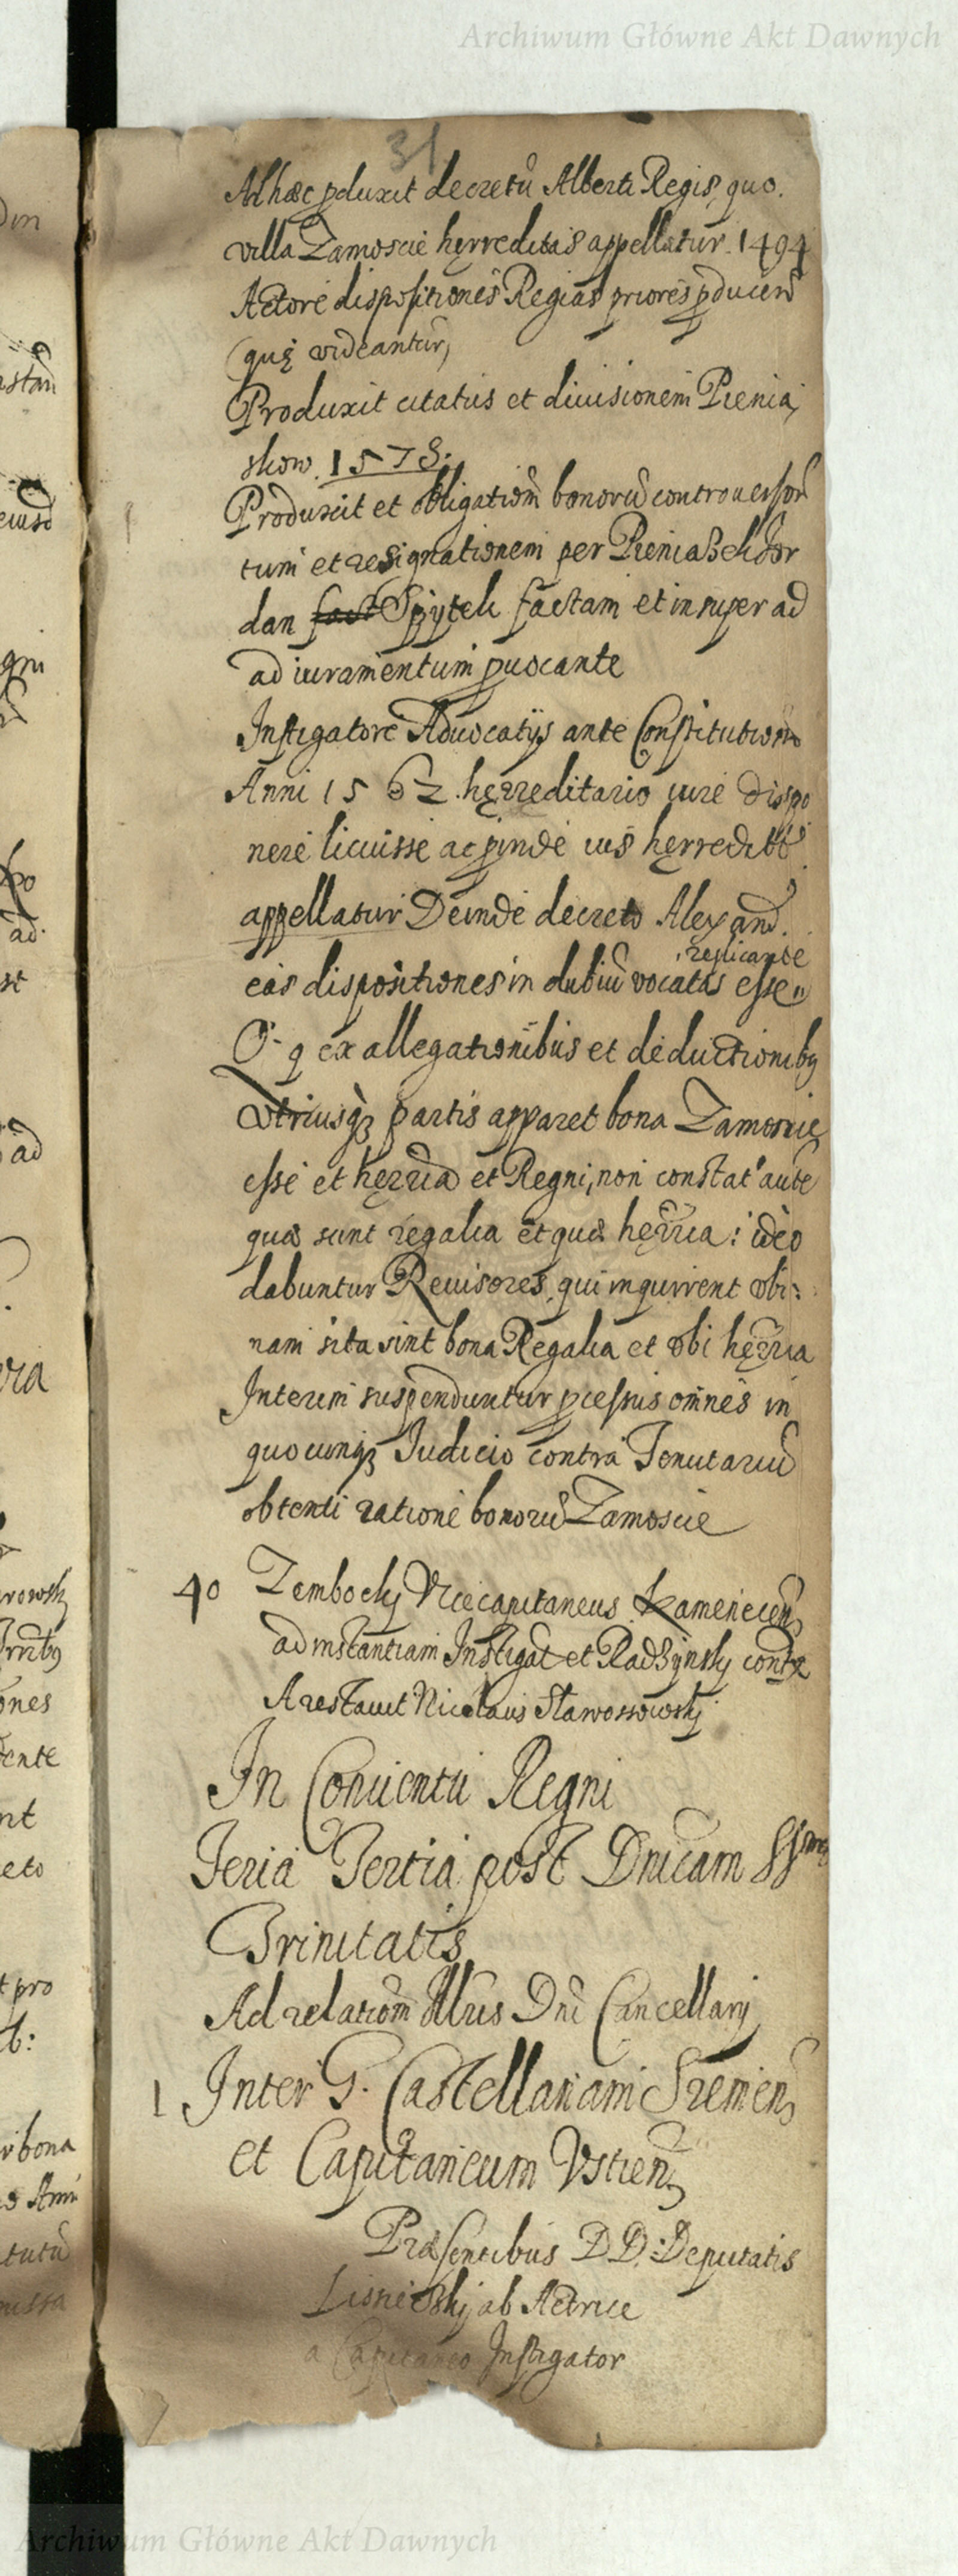 Archiwum Główne Akt Dawnych
31
Ad hæc pduxit decretū Alberti Regis, quo
villa Zamoscie hęrreditas appellatur. 1494
Actore dispositiones Regias priores pducen
(quę videantur)
Produxit citatus et diuisionem Pienia,
skow. 1578.
Produxit et obligatiom bonorū controuersor
tum et resignationem per Pieniaski Jor
dan fact Spytek factam et insuper ad
ad iuramentum puocante
Instigatore Aduocatijs ante Constitutiom
Anni 1562 hęrreditario iure dispo
nere licuisse ac pinde ius hęrredit
appellatur Deinde decreto Alexand.
replicante
eas dispositiones in dubiū vocatas esse
q ex allegationibus et deductionibq
vtriusqz partis apparet bona Zamoscie
esse et hęrria et Regni, non constat aute
quæ sunt regalia et quæ hęrria: ideo
dabuntur Reuisores, qui inquirent vbi:
nam sita sint bona Regalia et vbi hęrria
Interim suspenduntur pcessus omnes in
quocunqz Iudicio contra Tenutariū
obtenti ratione bonorū Zamoscie
40 Zembockj Vicecapitaneus Kamenecen
ad instantiam Instigat et Radzynskj contra
Arestauit Nicolaus Starossowskj
In Conuentu Regni
Feria Tertia post Dnicam SSmæ
Trinitatis
Ad relatiom Illris Dni Cancellarij
1 Inter G. Castellanam Sremen
et Capitaneum Vstien
Præsentibus DD: Deputatis
Lisieckj ab Actrice
a Capitaneo Instigator
Archiwum Główne Akt Dawnych